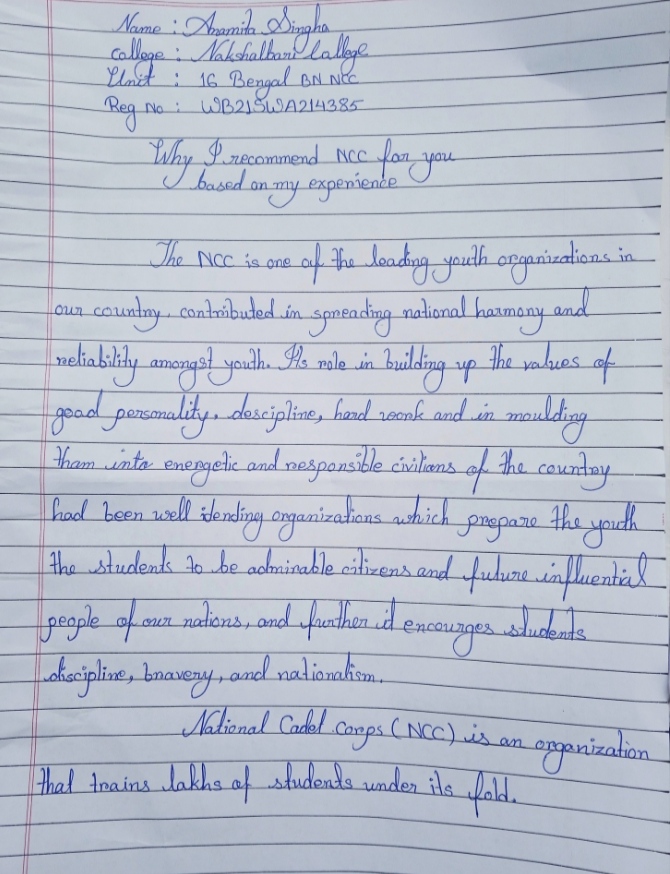 Name : Anamita Singha
College : Nakshalbari College
Unit : 16 Bengal BN NCC
Reg No : WB21SWA214385
Why I recommend NCC for you
based on my experience
The NCC is one of the leading youth organizations in
our country, contributed in spreading national harmony and
reliability amongst youth. Its role in building up the values of
good personality, descipline, hard work and in moulding
tham into energetic and responsible civilians of the country
had been well idending organizations which prepare the youth
the students to be adminable citizens and future influential
people of our nations, and further id encourges students
discipline, bravery, and nationalism.
National Cadet Corps (NCC) is an organization
that trains lakhs of students under its fold.